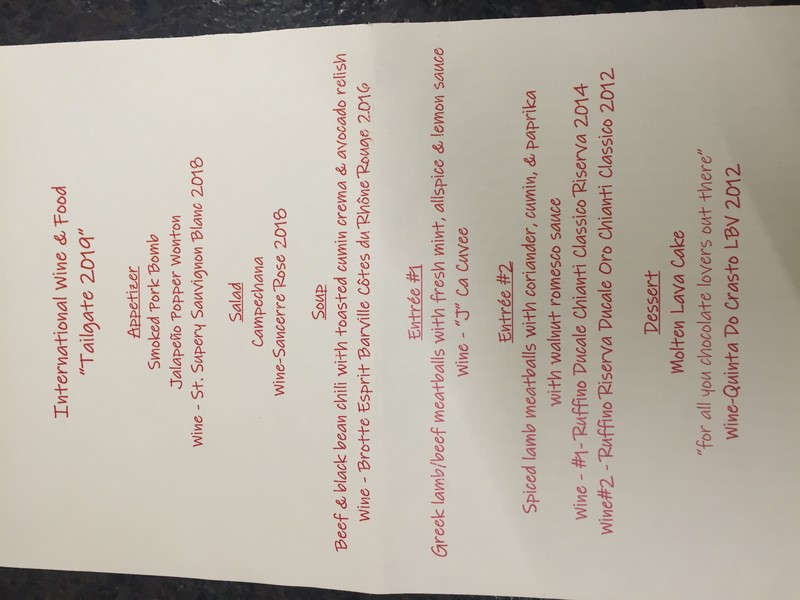 International Wine & Food
"Tailgate 2019"
Appetizer
Smoked Pork Bomb
Jalapeño Popper Wonton
Wine - St. Supery Sauvignon Blanc 2018
Salad
Campechana
Wine-Sancerre Rose 2018
Soup
Beef & black bean chili with toasted cumin crema & avocado relish
Wine - Brotte Esprit Barville Côtes du Rhône Rouge 2016
Entrée #1
Greek lamb/beef meatballs with fresh mint, allspice & lemon sauce
Wine - "J" Ca Cuvee
Entrée #2
Spiced lamb meatballs with coriander, cumin, & paprika
with walnut romesco sauce
Wine - #1- Ruffino Ducale Chianti Classico Riserva 2014
Wine#2 - Ruffino Riserva Ducale Oro Chianti Classico 2012
Dessert
Molten Lava Cake
"for all you chocolate lovers out there"
Wine-Quinta Do Crasto LBV 2012